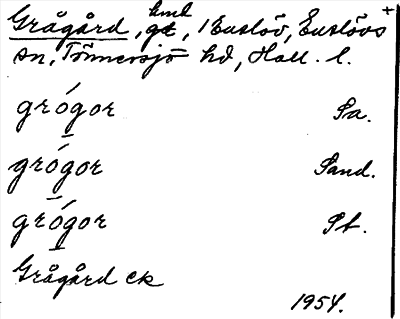 Grågård, hmd gd, 1 Euslöv, Euslövs +
sn, Tönnersjö hd, Hall. l.
grógor Sa.
grógor Sand.
grógor St.
Grågård ek
1954.